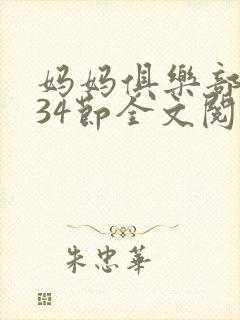 妈妈俱樂部
34節全文閱
朱忠華